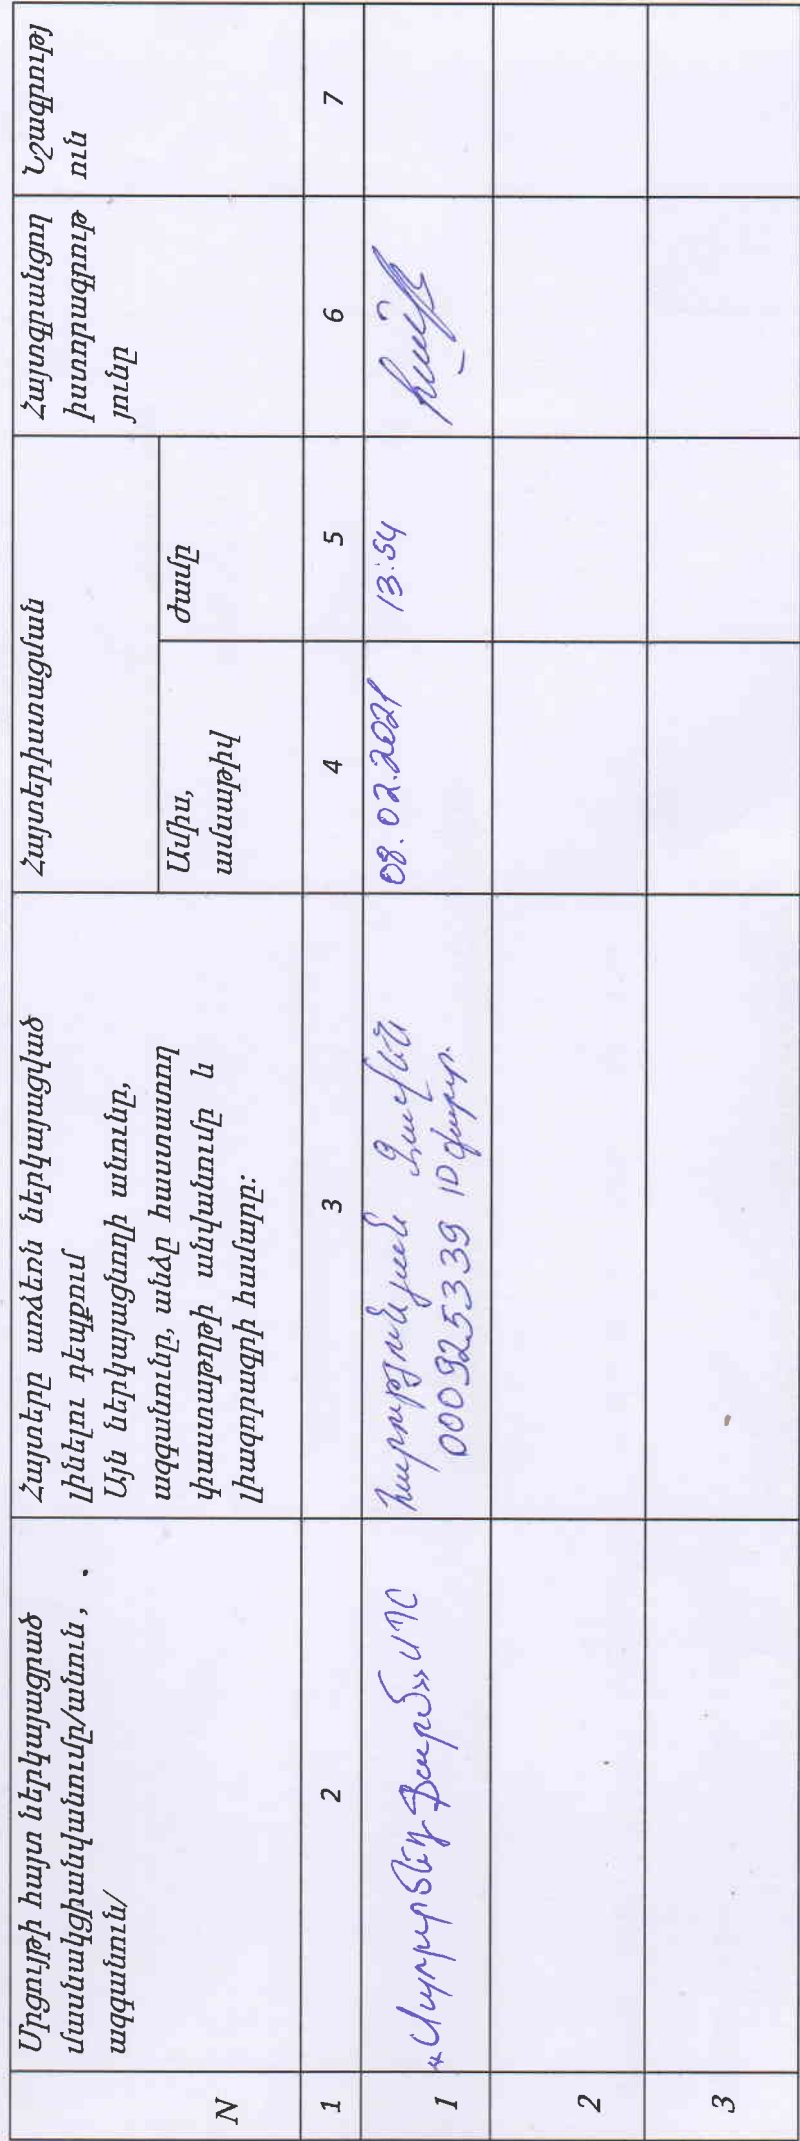 N
Մրցույթի հայտ ներկայացրած
մասնակցիանվանումը/անուն,
ազգանուն/
Հայտերը առձեռն ներկայացված
լինելու դեպքում
Այն ներկայացնողի անունը,
ազգանունը, անձը հաստատող
փաստաթղթի անվանումը և
լիազորագրի համարը:
Հայտերիստացման
Ամիս,
ամսաթիվ
ժամը
Հայտգրանցող
իստորագրութ
յունը
Նշագրությ
ուն
1
2
3
4
5
6
7
1
Ֆարմ» ՍՊԸ
Հարությունյան Զավեն
000925339 ID քարտ
08.02.2021
13:54
2
3